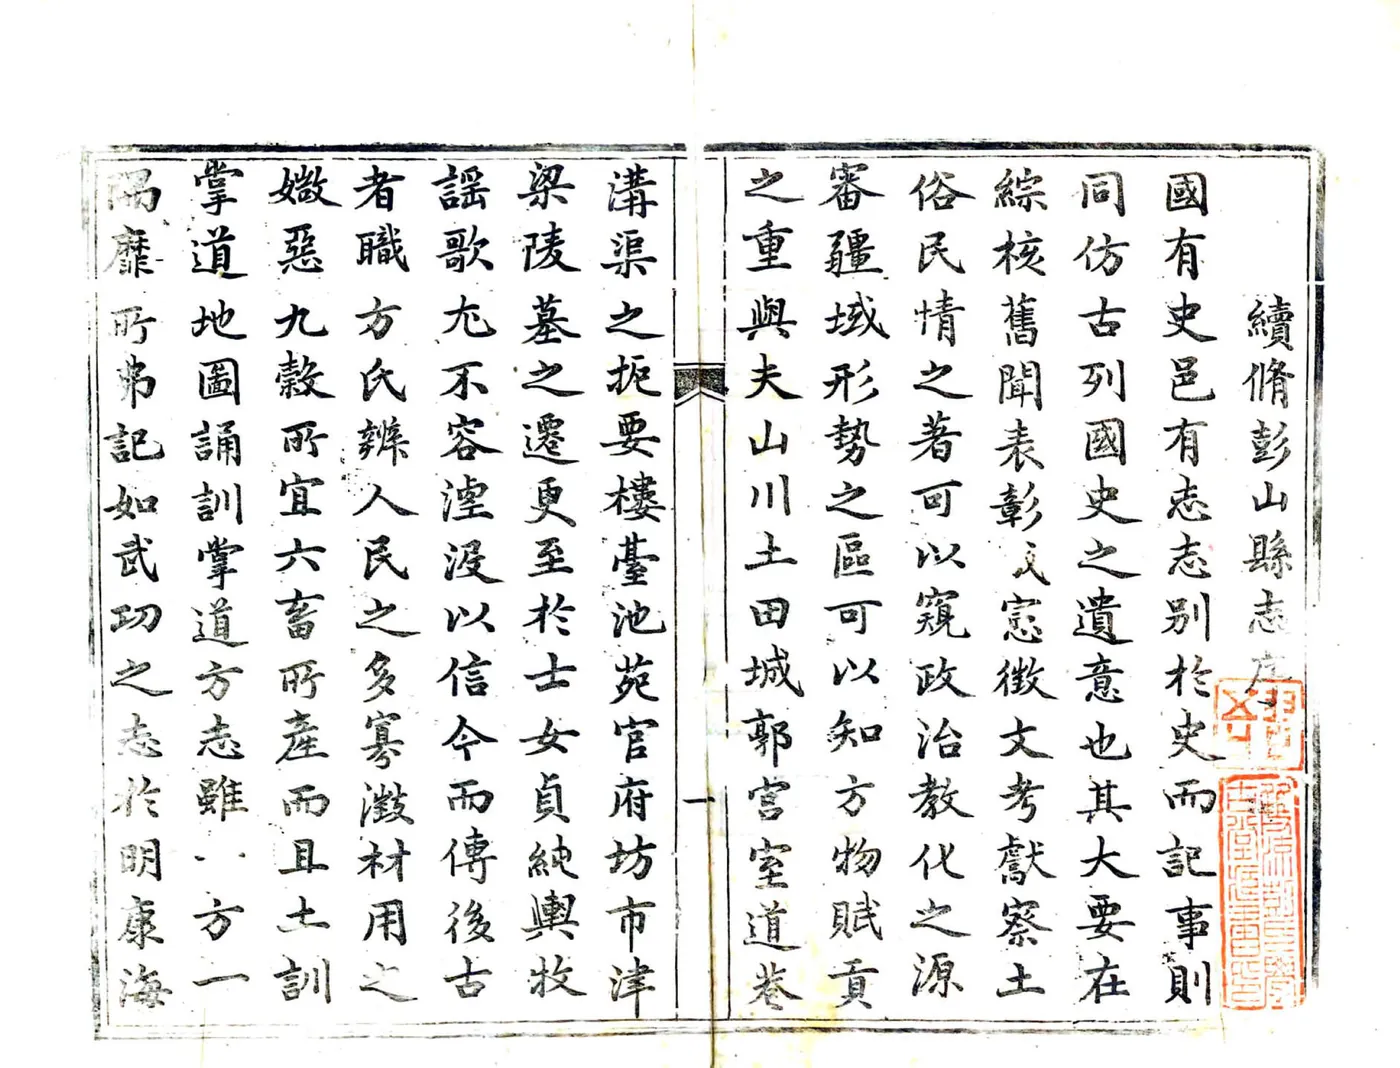 續脩彭山縣志序
國有史邑有志志別於史而記事則
同仿古列國史之遺意也其大要在
綜核舊聞表彰文憲徵文考獻察土
俗民情之著可以窺政治教化之源
審疆域形勢之區可以知方物賦貢
之重與夫山川土田城郭宮室道巷
一
溝渠之扼要樓臺池苑官府坊市津
梁陵墓之遷更至於士女貞純輿牧
謡歌尤不容湮沒以信今而傳後古
者職方氏辨人民之多寡澂材用之
媺惡九穀所宜六畜所產而且土訓
掌道地圖誦訓掌道方志雖 方一
隅靡所弗記如武功之志於明康海